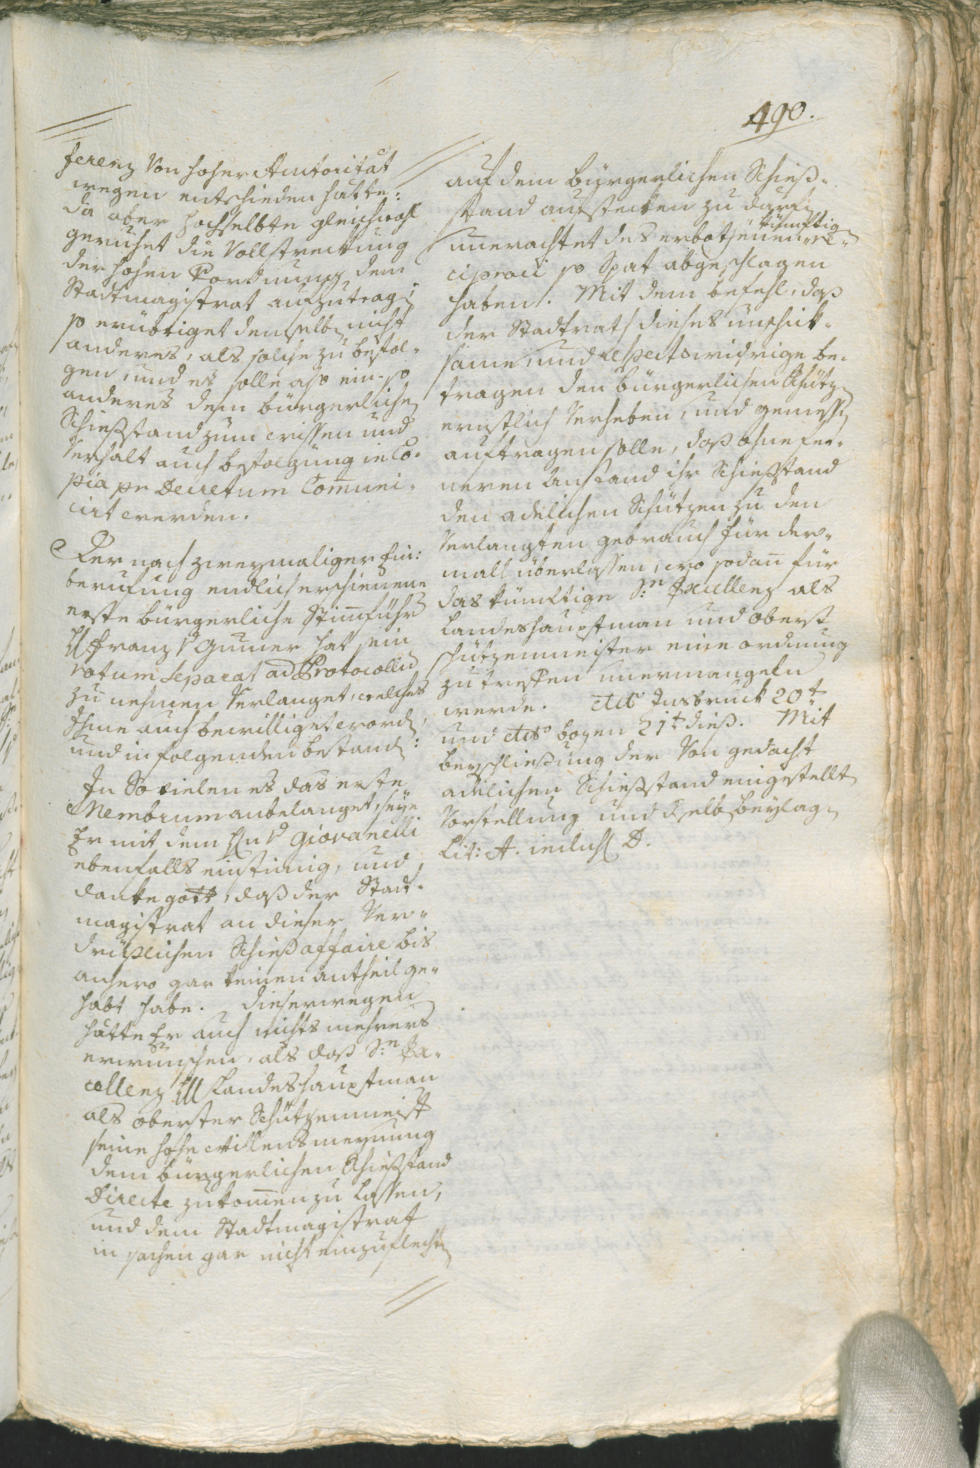 490.
ferenz Von hoher Autorität
wegen entschieden hätte:
da aber hochselbte gleichwohl
geruhet die Vollstreckung
der hohen Vorkhnung dem
Stadtmagistrat aufzutragen
so erübriget demselben nicht
anderes, als solche zu befol-
gen, und es solle also ein- so
anderes dem bürgerlichen
Schießstand zum wissen und
Verhalt auch befolgung in Co-
pia per Decretum Comuni-
cirt werden.
Der nach zweymaliger Ein:
berufung endlich erschienene
erste bürgerliche Stimmführer
H Franz v Gumer hat sein
Votum separat ad Protocollum
zu nehmen Verlanget, welches
Ihme auch bewilliget worden,
und in folgenden bestanden:
In So vielen es das erste
Membrum anbelanget, seye
Er mit dem Hn v Giovanelli
ebenfalls einstimig, und
danke gott, daß der Stadt-
magistrat an dieser Ver-
drüßlichen Schießaffaire bis
anhero gar keinen antheil ge-
habt habe. dieserwegen
hätte Er auch nichts mehrers
erwünschen, als daß Sr Ex-
cellenz Landeshauptman
als oberster Schützenmeister
seine hohe Willensmeynung
dem bürgerlichen Schießstand
Directe zukomen zu lassen,
und dem Stadtmagistrat
in sachen gar nicht einzuflechten
auf dem bürgerlichen Schieß-
stand aufstecken zu darfen
künftig
unerachtet des erbothenen re-
ciproci so Spat abgeschlagen
haben. Mit dem befehl, daß
der Stadtrath dieses unschick-
same, und respectswidrige be-
tragen den bürgerlichen Schützen
ernstlich Verheben, und gemessen
auftragen solle, daß ohne fer-
neren Anstand ihr Schießstand
den adelichen Schützen zu den
Verlangten gebrauch für der-
mahl überlassen, wo sodann für
das künftige Sr Excellenz als
Landeshauptman und oberst
schützenmeister eine ordnung
zu treffen unermangeln
werde. Insbruck 20t
und bozen 21t dieß. Mit
beyschließung der Von gedacht
adelichen Schießstand eingestellten
Vorstellung und derselben beylagen
Lit: A. D.